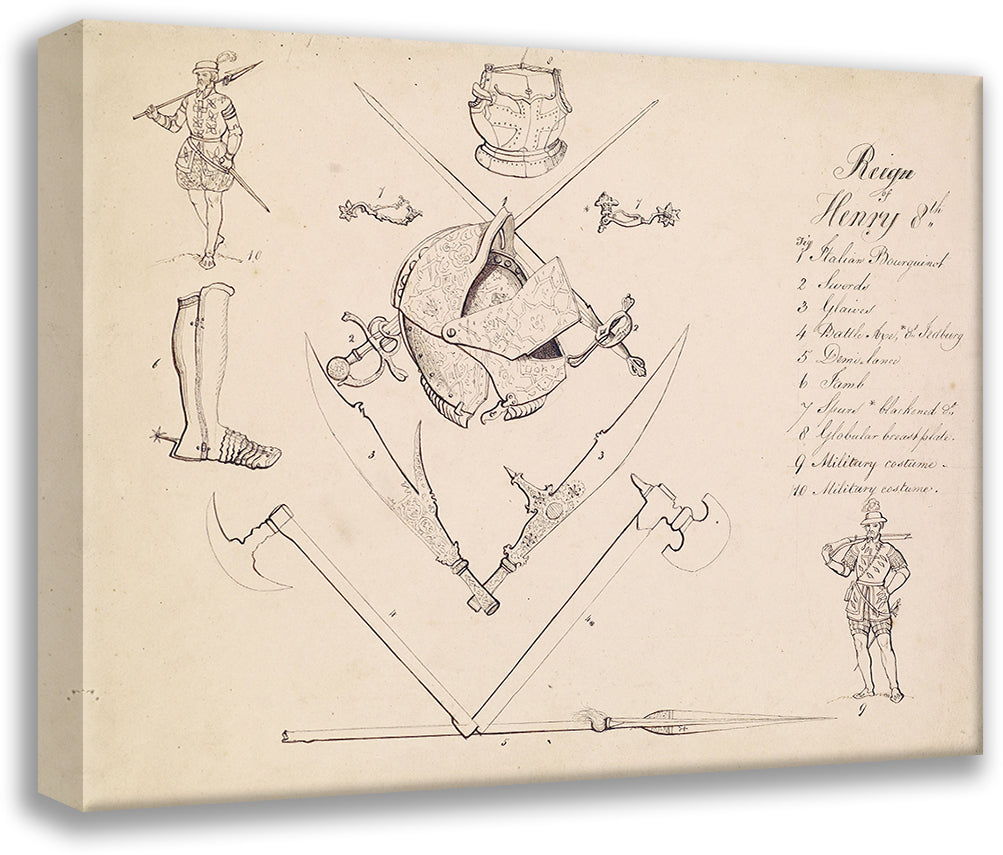 Reign
of
Henry 8th
Fig
1 Italian Bourguinot
2 Swords
3 Glaives
4 Battle Axe, * &c. Tedburg
5 Demi lance
6 Jamb
7 Spurs * blackened &c.
8 Globular breast plate.
9 Military costume.
10 Military costume.
8
10
7
7
1
2
2
6
3
3
4
4*
5
9